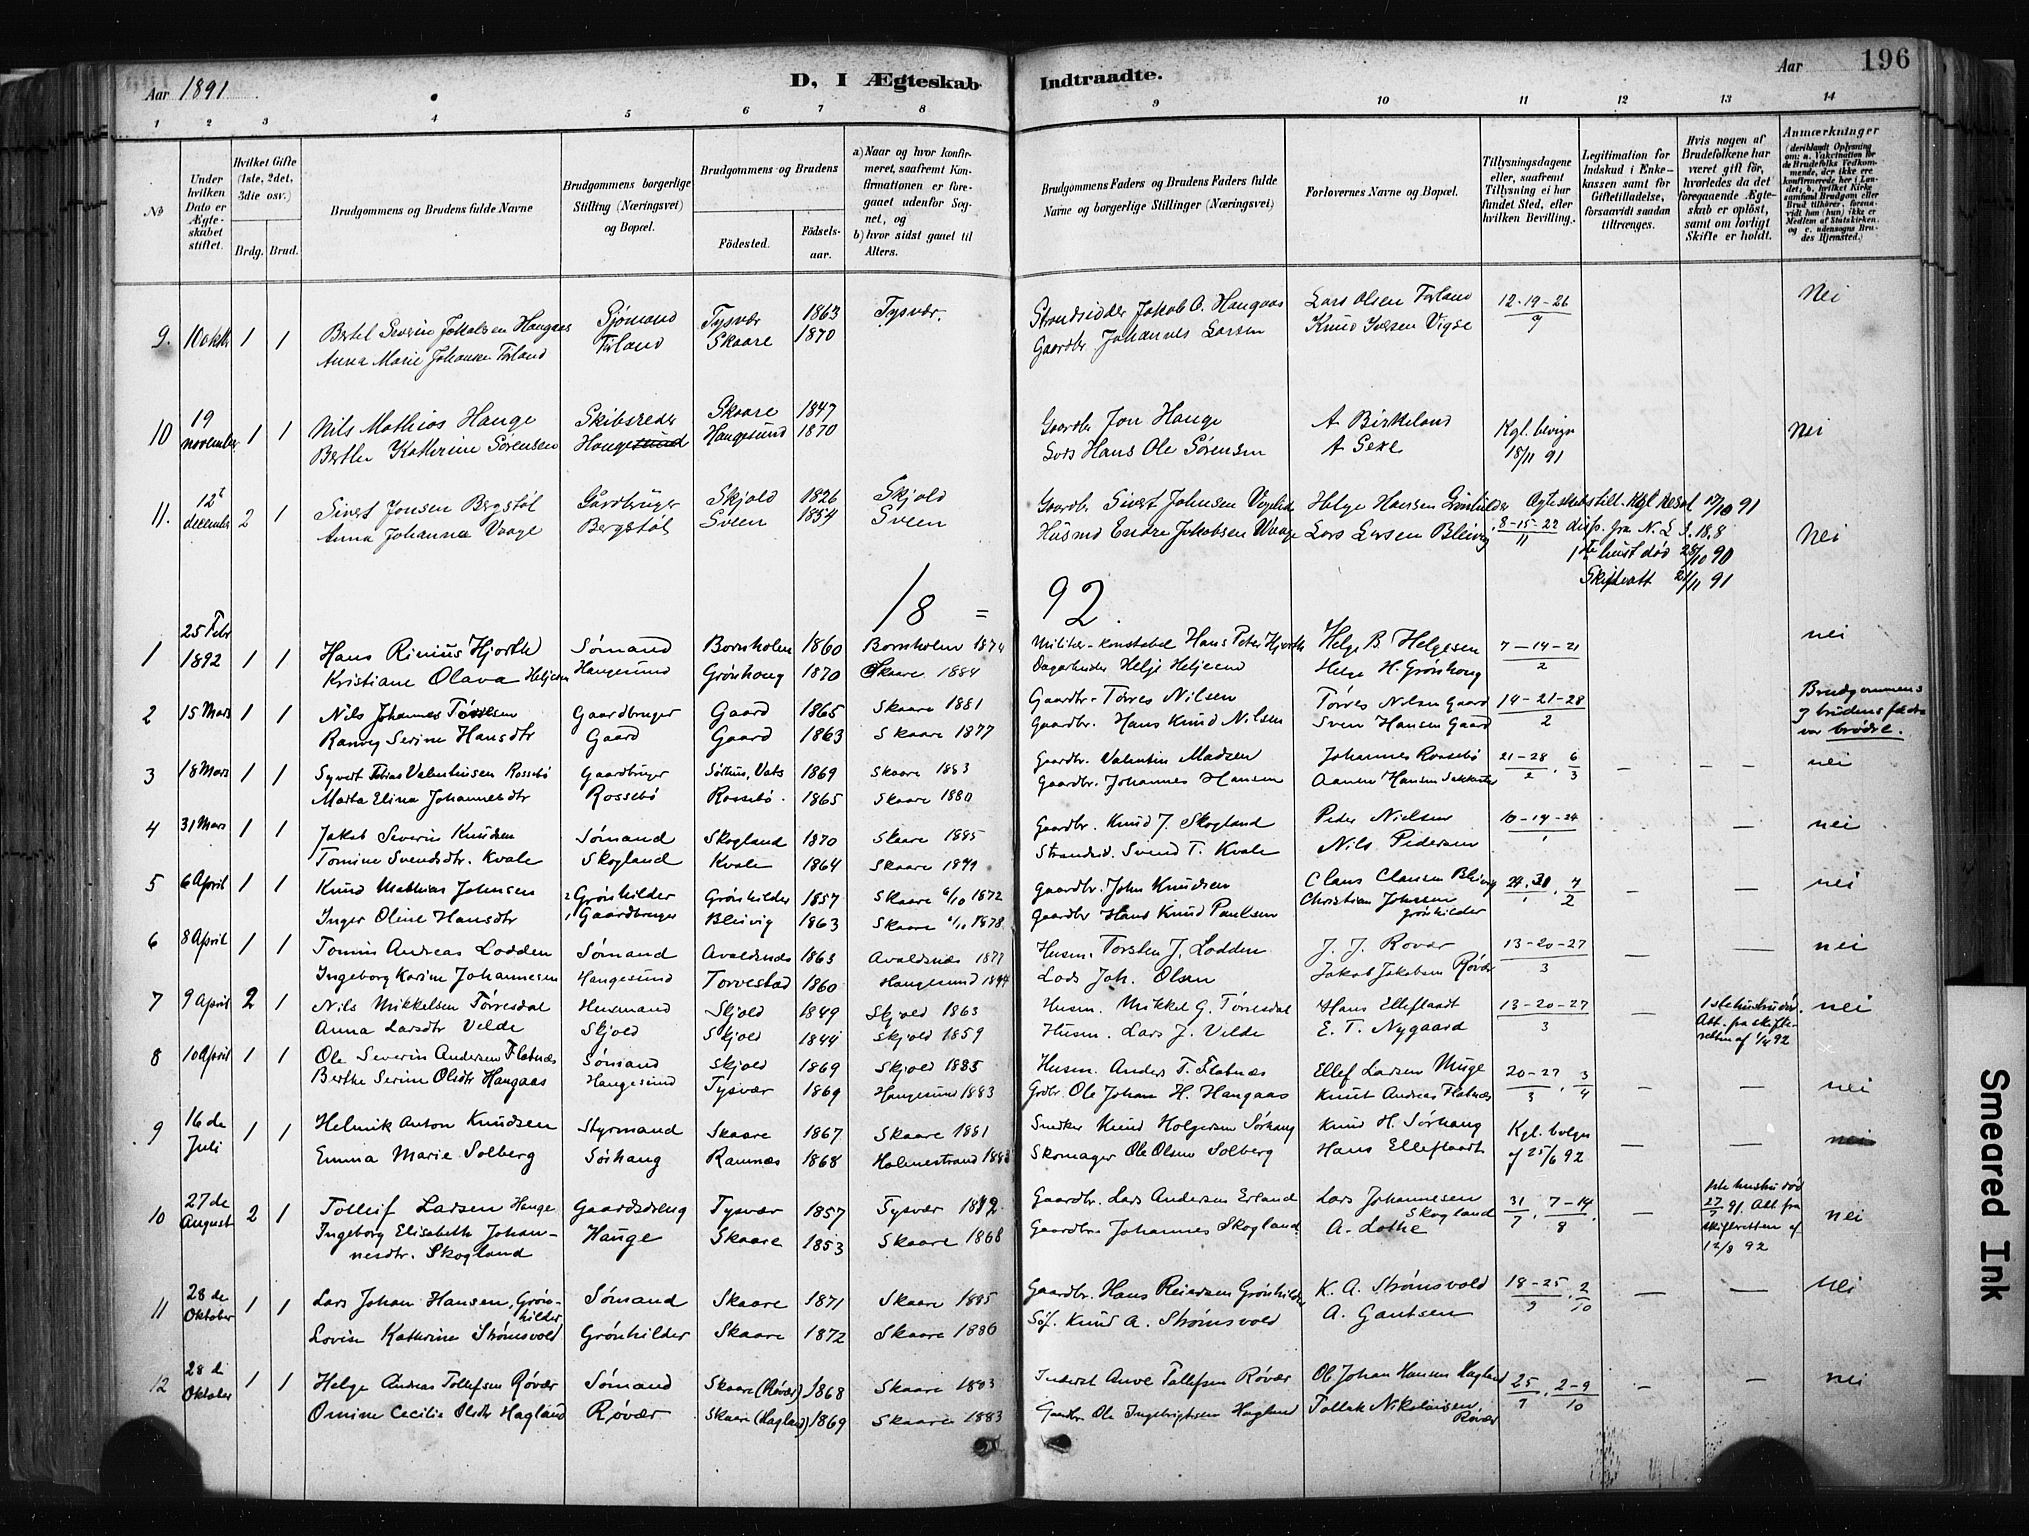 Aar 1891
D, I Ægteskab Indtraadte.
Aar 196
1 2 3 4 5 6 7 8 9 10 11 12 13 14
No
Under hvilken Dato er Ægteskabet stiftet.
Hvilket Gifte (1ste, 2det, 3die osv.)
Brdg. Brud.
Brudgommens og Brudens fulde Navne
Brudgommens borgerlige Stilling (Næringsvei) og Bopæl.
Brudgommens og Brudens
Fødested.
Fødselsaar.
a) Naar og hvor konfirmeret, saafremt Konfirmationen er foregaaet udenfor Sognet, og
b) hvor sidst gaaet til Alters.
Brudgommens Faders og Brudens Faders fulde Navne og borgerlige Stillinger (Næringsvei)
Forlovernes Navne og Bopæl.
Tillysningsdagene eller, saafremt Tillysning ei har fundet Sted, efter hvilken Bevilling.
Legitimation for Indskud i Enkekassen samt for Giftetilladelse, forsaavidt saadan tiltrænges.
Hvis nogen af Brudefolkene har været gift før, hvorledes da det foregaaende Ægteskab er opløst, samt om lovligt Skifte er holdt.
Anmærkninger
9. 10 okth 1 1 Bertel Severin Jakobsen Haugaas Sjømand Tysvær 1863 Tysvær. Strandsidder Jakob O. Haugaas Lars Olsen Førland 12-19-26 Nei
Anna Marie Johansen Førland Førland Skaare 1870 Gaardbr Johannes Larsen Knud Vigse 9
10 19 november 1 1 Nils Mathias Hauge Skibsreder Skaare 1847 Gaardbr Jon Hauge A Birkeland Kgl. bevign nei
Berthe Kathrine Sørensen Haugesund Haugesund 1870 Lods Hans Ole Sørensen A Sexe 18/11 91
11. 12t december 2 1 Sivert Jonsen Bergstøl Gardbruger Skjold 1826 Skjold Gaardbr Sivert Johnsen Helge Hansen Grønhilder Kgl Resol 17/10 91
Anna Johanna Vaage Bergstøl Sveen 1854 Sveen Husmd Endre Jakobsen Waage Lars Larsen Bleivig 8-15-22 11 Nei
1ste hust død 25/10 90
Skifteatt 21/11 91
18 = 92.
1 25 Febr 1892 1 1 Hans Rinius Hjorth Sømand Bornholm 1860 Bornholm 1874 Militær-konstabel Hans Peter Hjorth Helge B Helgesen 7-14-21 nei
Kristiane Olava Heljesen Haugesund Grønhoug 1870 Skaare 1884 Dagarbeider Helje Heljesen Helge H. Grønhoug 2
2 15 Mars 1 1 Nils Johannes Tørresen Gaardbruger Gaard 1865 Skaare 1881 Gaardbr. Tørres Nilsen Tørres Nilsen Gaard 14-21-28 Brudgommens
Ranveg Serine Hansdtr Gaard Gaard 1863 Skaare 1877 Gaardbr. Hans Knud Nilsen Sven Hansen Gaard 2 og brudens fædre var brødre.
3 18 Mars 1 1 Syvert Tobias Valentinsen Rossebø Gaardbruger Sørhus, Vats 1869 Skaare 1883 Gaardbr. Valentin Madsen Johannes Rossebø 21-28 2 . 6 3 — — — nei
Marta Elina Johannesdtr Rossebø Rossebø. 1865 Skaare 1880 Gaardbr. Johannes Hansen Aanen Hansen
4 31 Mars 1 1 Jakob Severin Knudsen Sømand Skogland 1870 Skaare 1885 Gaardbr. Knud J. Skogland Peder Nielsen 10-14-24 — nei
Tomine Svendsdtr. Kvale Skogland Kvale 1864 Skaare Strandsid. Svend T. Kvale Nils Pedersen 1
5 6 April 1 1 Knud Mathias Johnsen Grønhilder Grønhilder 1857 Skaare 6/10 1872 Gaardbr. John Knudsen Claus Clausen Bleivig 24.31 . — — nei
Inger Oline Hansdtr Gaardbruger Bleivig 1863 Skaare 1878 Gaardbr Hans Knud Paulsen Christian Johnsen Grønhilder 2
6 8 April 1 1 Tomus Andreas Lodden Sømand Avaldsnæs 1863 Avaldsnæs Husm. Torsten J. Lodden J. J. Rovær 13-20-27 — — nei
Ingeborg Karine Johannesen Haugesund Torvestad 1860 Haugesund Lods Joh. Olsen Jakob Jakobsen Røvær 3
7 9 April 2 1 Nils Mikkelsen Tørresdal Husmand Skjold 1849 Skjold 1863 Husm. Mikkel G. Tørresdal Hans Elleflaadt 13-20-27 — 1ste hustru død. nei
Anna Larsdtr Velde Skjold Skjold 1844 Skjold 1859 Husm. Lars J. Velde E. T. Nygaard 3 Att. fra skifteretten af 1/4 92
8 10 April 1 1 Ole Severin Andersen Flatnæs Sømand Skjold 1869 Skjold 1885 Husm. Anders T. Flatnæs Ellef Larsen Muge 20-27 3 . 3 4 — — nei
Berthe Serine Olsdtr Haugaas Haugesund Tysvær 1869 Haugesund 1883 Grdbr. Ole Johan H. Haugaas Knut Andreas Flatnæs
9 16 de Juli 1 1 Helmik Anton Knudsen Styrmand Skaare 1867 Skaare 1881 Snedker Knud Holgersen Sørhaug Knud H. Sørhaug Kgl. bevlgn — — nei
Emma Marie Solberg Sørhaug Ramnæs 1868 Holmestrand Skomager Ole Olsen Solberg Hans Elleflaadt af 25/6 92
10 27 de August 2 1 Tolleif Larsen Hauge Gaardsdreng Tysvær 1857 Tysvær 1872 Gaardbr. Lars Andersen Erland Lars Johannesen Skogland 31 7 . 7-14 8 . — 1ste hustru død nei
Ingeborg Elisabeth Johannesdtr. Skogland Hauge Skaare 1853 Skaare 1868 Gaardbr. Johannes Skogland. A. Lothe 27/7 91. Att fra skifteretten af 12/8 92
11 28 de Oktober 1 1 Lars Johan Hansen, Grønhilder Sømand Skaare 1871 Skaare 1885 Gaardbr. Hans Reiersen Grønhilder K. A. Strømsvold 18-25 9 . 2 10 — — nei
Lovise Kathrine Strømsvold Grønhilder Skaare 1872 Skaare 1886 Sjf. Knud A. Strømsvold A. Gautsen
12 28 d Oktober 1 1 Helge Andreas Tollefsen Røvær Sømand Skaare (Røvær) 1868 Skaare 1883 Inderst Anve Tollefsen Røvær Ole Johan Hansen Hagland 25 9 . 2-9 10 — — nei
Omine Cecilie Olsdtr Hagland Røvær Skaare (Hagland) 1869 Skaare 1883 Gaardbr Ole Ingebrigtsen Hagland Tollak Nikolaisen Røvær
Smeared Ink